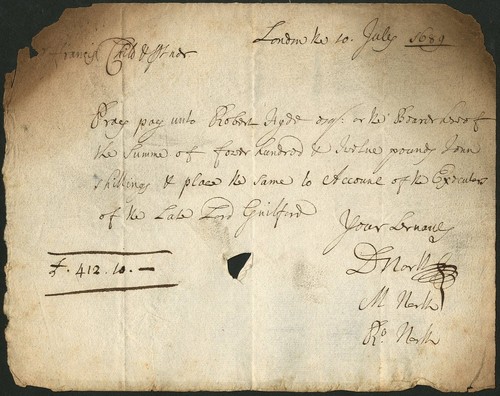 London the 10. July 1689
Francis Child & Ptnor
Pray pay unto Robert Hyde esqr: or the Bearer hereof
the Summe of fower hundred & twelve pounds tenn
shillings & place the same to Account of the Executors
of the Late Lord Guilford
Your Servants
£. 412. 10. —
D North
M North
Ro North